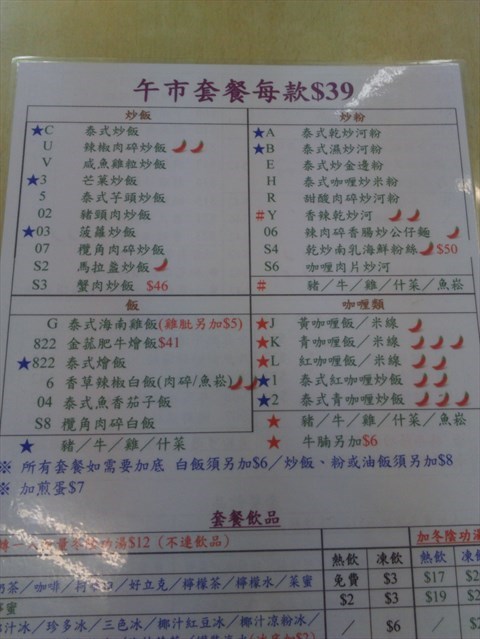 午市套餐每款$39
炒飯
★C 泰式炒飯
U 辣椒肉碎炒飯
V 咸魚雞粒炒飯
★3 芒菓炒飯
5 泰式芋頭炒飯
02 豬頸肉炒飯
★03 菠蘿炒飯
07 欖角肉碎炒飯
S2 馬拉盞炒飯
S3 蟹肉炒飯 $46
炒粉
★A 泰式乾炒河粉
★B 泰式濕炒河粉
E 泰式炒金邊粉
H 泰式咖喱炒米粉
R 甜酸肉碎炒河粉
#Y 香辣乾炒河
06 辣肉碎香腸炒公仔麵
S4 乾炒南乳海鮮粉絲 $50
S6 咖喱肉片炒河
# 豬／牛／雞／什菜／魚崧
飯
G 泰式海南雞飯(雞肶另加$5)
822 金菇肥牛燴飯$41
★822 泰式燴飯
6 香草辣椒白飯(肉碎/魚崧)
04 泰式魚香茄子飯
S8 欖角肉碎白飯
★ 豬／牛／雞／什菜
咖喱類
★J 黃咖喱飯／米線
★K 青咖喱飯／米線
★L 紅咖喱飯／米線
★1 泰式紅咖喱炒飯
★2 泰式青咖喱炒飯
★ 豬／牛／雞／什菜／魚崧
★ 牛腩另加$6
※ 所有套餐如需要加底 白飯須另加$6／炒飯、粉或油飯須另加$8
※ 加煎蛋$7
套餐飲品
冬陰功湯$12（不連飲品）
加冬陰功湯
熱飲 凍飲 熱飲 凍飲
奶茶／咖啡／好立克／檸檬茶／檸檬水／菜蜜 免費 $3 $17
蜜 $2 $3 $19
椰汁冰／珍多冰／三色冰／椰汁紅豆冰／椰汁涼粉冰／ ／ $6 ／